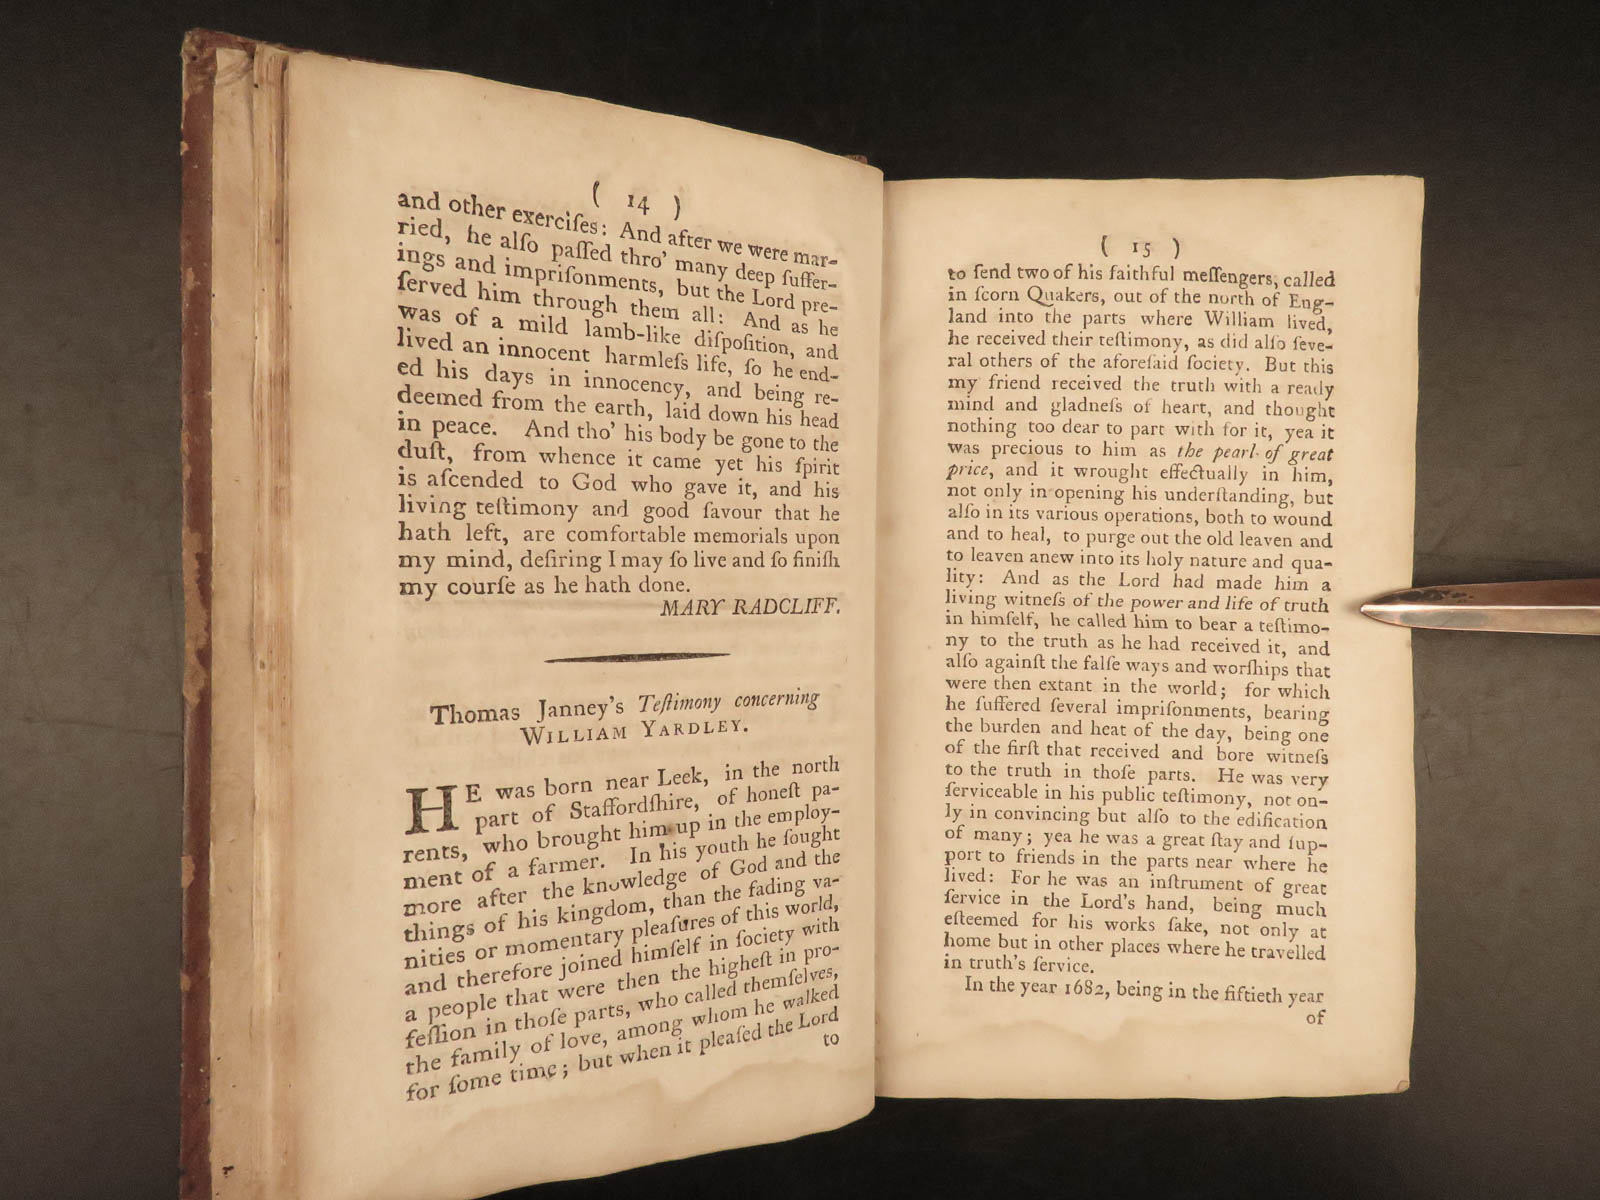 ( 14 )
and other exerciſes: And after we were mar-
ried, he alſo paſſed thro' many deep ſuffer-
ings and impriſonments, but the Lord pre-
ſerved him through them all: And as he
was of a mild lamb-like diſpoſition, and
lived an innocent harmleſs life, ſo he end-
ed his days in innocency, and being re-
deemed from the earth, laid down his head
in peace. And tho' his body be gone to the
duſt, from whence it came yet his ſpirit
is aſcended to God who gave it, and his
living teſtimony and good ſavour that he
hath left, are comfortable memorials upon
my mind, deſiring I may ſo live and ſo finiſh
my courſe as he hath done.
MARY RADCLIFF.
Thomas Janney's Teſtimony concerning
WILLIAM YARDLEY.
HE was born near Leek, in the north
part of Staffordſhire, of honeſt pa-
rents, who brought him up in the employ-
ment of a farmer. In his youth he ſought
more after the knowledge of God and the
things of his kingdom, than the fading va-
nities or momentary pleaſures of this world,
and therefore joined himſelf in ſociety with
a people that were then the higheſt in pro-
feſſion in thoſe parts, who called themſelves,
the family of love, among whom he walked
for ſome time; but when it pleaſed the Lord
to
( 15 )
to ſend two of his faithful meſſengers, called
in ſcorn Quakers, out of the north of Eng-
land into the parts where William lived,
he received their teſtimony, as did alſo ſeve-
ral others of the aforeſaid ſociety. But this
my friend received the truth with a ready
mind and gladneſs of heart, and thought
nothing too dear to part with for it, yea it
was precious to him as the pearl of great
price, and it wrought effectually in him,
not only in opening his underſtanding, but
alſo in its various operations, both to wound
and to heal, to purge out the old leaven and
to leaven anew into its holy nature and qua-
lity: And as the Lord had made him a
living witneſs of the power and life of truth
in himſelf, he called him to bear a teſtimo-
ny to the truth as he had received it, and
alſo againſt the falſe ways and worſhips that
were then extant in the world; for which
he ſuffered ſeveral impriſonments, bearing
the burden and heat of the day, being one
of the firſt that received and bore witneſs
to the truth in thoſe parts. He was very
ſerviceable in his public teſtimony, not on-
ly in convincing but alſo to the edification
of many; yea he was a great ſtay and ſup-
port to friends in the parts near where he
lived: For he was an inſtrument of great
ſervice in the Lord's hand, being much
eſteemed for his works ſake, not only at
home but in other places where he travelled
in truth's ſervice.
In the year 1682, being in the fiftieth year
of